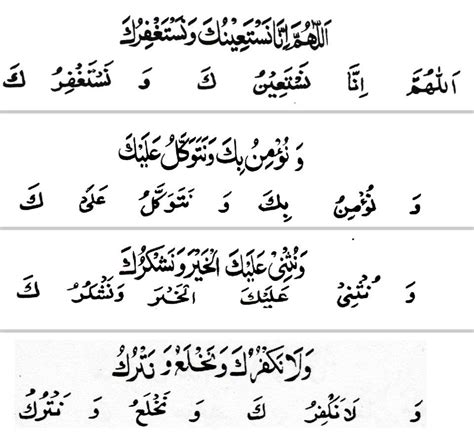 اَللّٰهُمَّ اِنَّا نَسْتَعِيْنُكَ وَنَسْتَغْفِرُكَ
اَللّٰهُمَّ اِنَّا نَسْتَعِيْنُ كَ وَ نَسْتَغْفِرُ كَ
وَ نُؤْمِنُ بِكَ وَنَتَوَكَّلُ عَلَيْكَ
وَ نُؤْمِنُ بِكَ وَ نَتَوَكَّلُ عَلَىْ كَ
وَنُثْنِىْ عَلَيْكَ الْخَيْرَ وَنَشْكُرُكَ
وَ نُثْنِىْ عَلَيْكَ الْخَيْرَ وَنَشْكُرُ كَ
وَلَا نَكْفُرُكَ وَنَخْلَعُ وَ نَتْرُكُ
وَ لَا نَكْفُرُ كَ وَ نَخْلَعُ وَ نَتْرُكُ